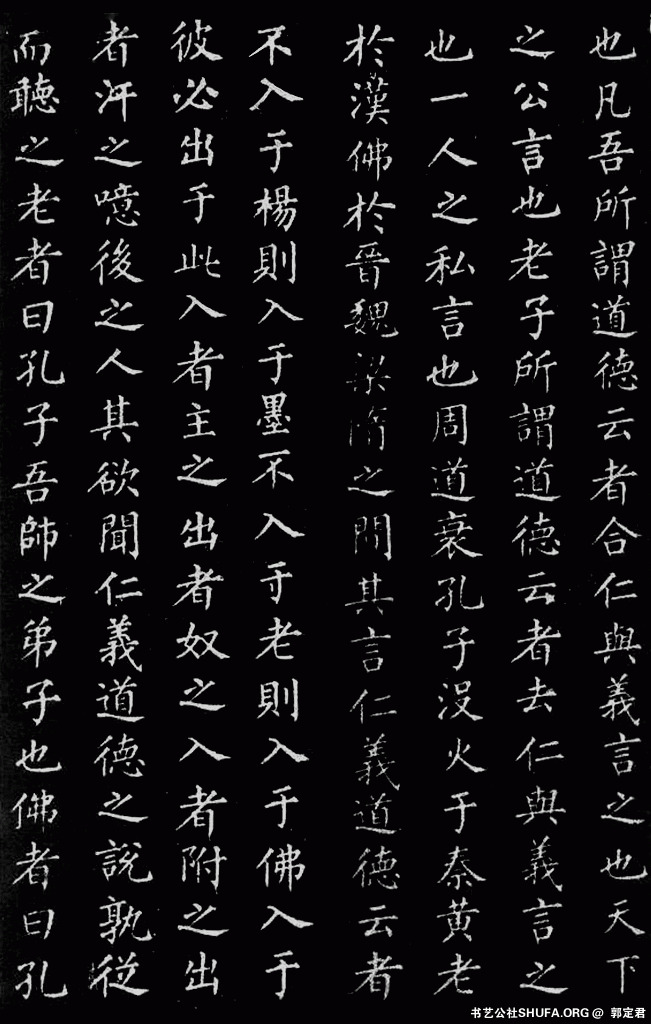 也凡吾所謂道德云者合仁與義言之也天下
之公言也老子所謂道德云者去仁與義言之
也一人之私言也周道衰孔子沒火于秦黃老
於漢佛於晉魏梁隋之間其言仁義道德云者
不入于楊則入于墨不入于老則入于佛入于
彼必出于此入者主之出者奴之入者附之出
者汙之噫後之人其欲聞仁義道德之說孰從
而聽之老者曰孔子吾師之弟子也佛者曰孔
书艺公社SHUFA.ORG @ 郭定君